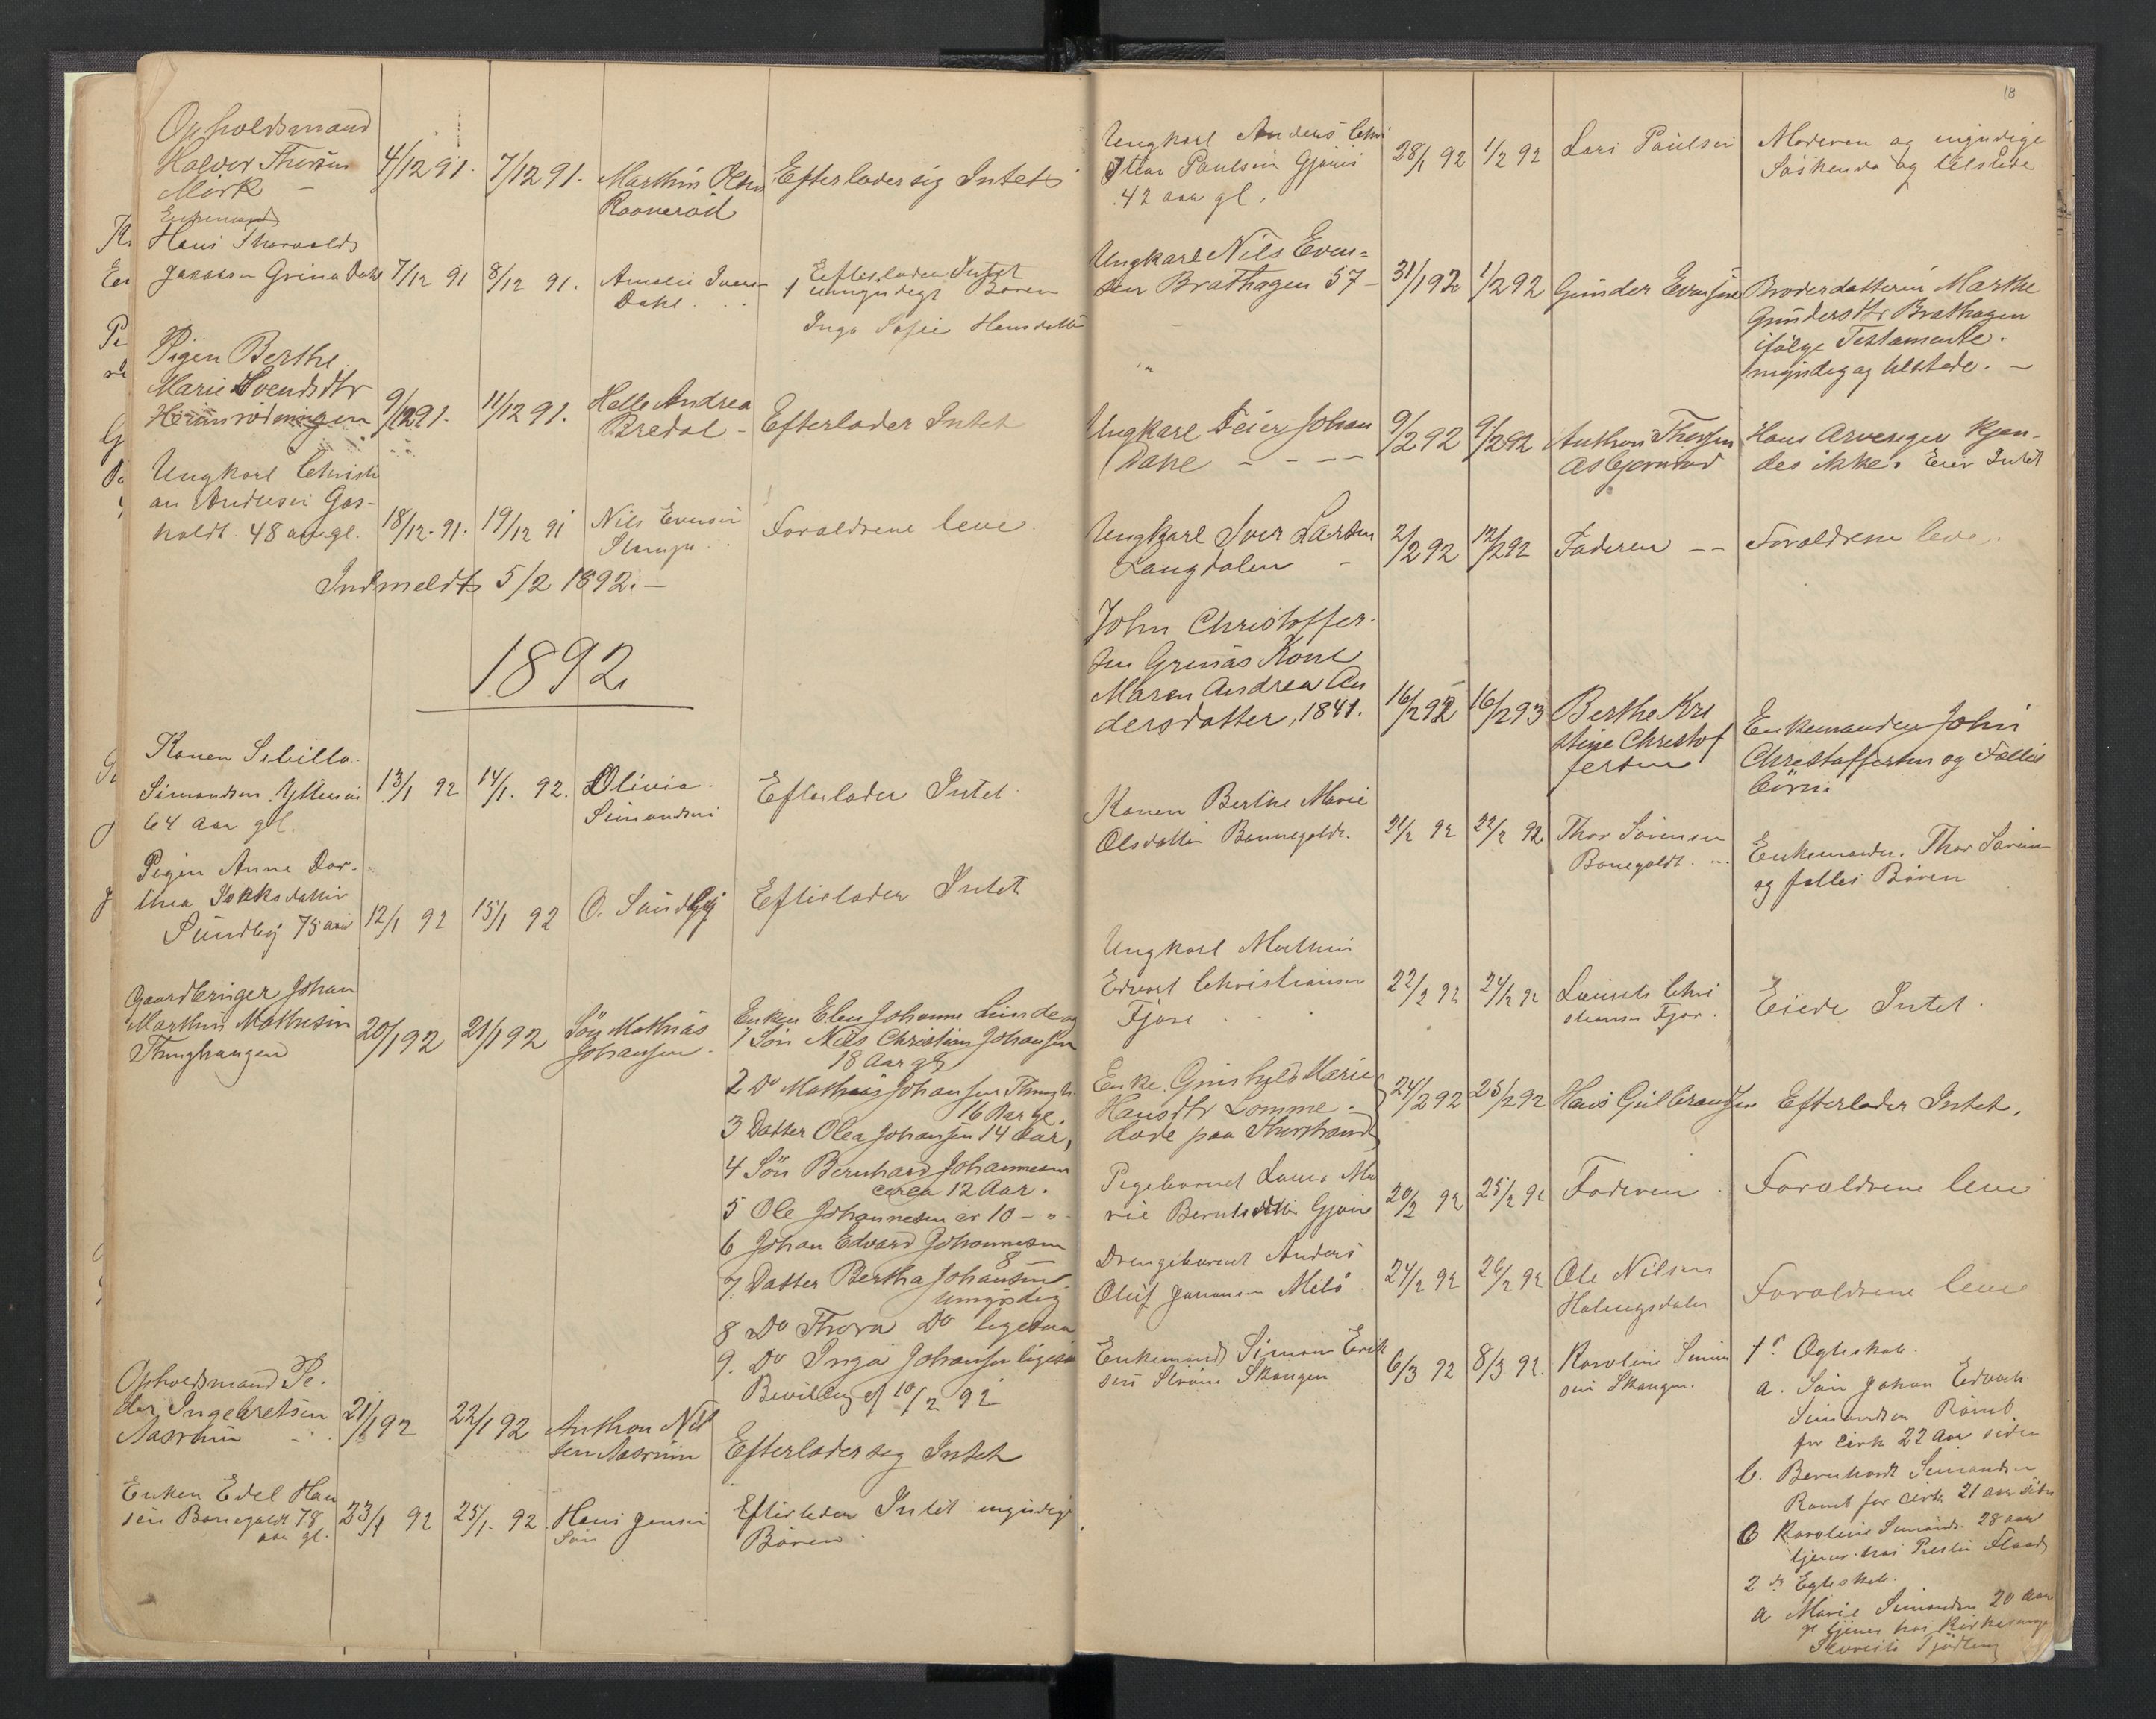 Opholdsmand
Halvor Thorsen
Mörk –
4/12 91.
7/12 91.
Marthin Olsen
Raaneröd
Efterlader sig Intet
Enkemand
Hans Thorvalds
Jacobsen Grina Dahl
7/12 91
8/12 91.
Amalie Iversen
Dahl
Efterlader Intet
1 umyndigt Baren
Inga Sofie Hansdatter
Pigen Berthe
Marie Svendsdtr
9/12 91.
11/12 91.
Helle Andrea
Bredal –
Efterlader Intet
Ungkarl Christi
an Andersen Gos-
holdt 48 aar gl.
18/12. 91.
19/12 91
Nils Evensen
Foraldrene leve
Indmeldt 5/2 1892. –
1892
Konen Sibilla
Simondsen
64 aar gl.
13/1 92
14/1. 92.
Olivia
Simondsen
Efterlader Intet
Pigen Anne Dor-
thea Isaksdatter
Sundby 75 aar
12/1 92
15/1 92
O. Sundby
Efterlader Intet
Gaardbruger Johan
Marthin Mathisen
Thinghaugen
20/1 92
21/1 92
Sön Mathias
Johansen
Enken Elen Johanne Lunde og
1 Sön Nils Christian Johansen
18 Aar gl
2 Do Mathias Johansen Thingh
16 Aar gl.
3 Datter Olea Johansen 14 Aar,
4 Sön Bernhard Johannesen
circa 12 Aar.
5 Ole Johannesen er 10 – " –
6 Johan Edvard Johannesen
8 –
7. Datter Bertha Johansen
umyndig
8 Do Thora Do ligesaa
9. Do Inga Johansen ligesaa
Bevilling af 10/2 92
Opholdsmand Pe-
der Ingebretsen
Aasrum
21/1 92
22/1 92
Anthon Nil
sen Aasrum
Efterlader sig Intet
Enken Edel Han
sen Bonegoldt 78
aar gl.
23/1 92
25/1. 92
Hans Jensen
Sön
Efterleder Intet myndige
Bören
18
Ungkarl Anders Chri
stian Paulsen Gjönis
42 aar gl.
28/1 92
1/2 92
Lars Paulsen
Moderen og myndige
Söskende og tilstede
Ungkarl Nils Even=
sen Brathagen 57 –
31/1 92
1/2 92
Gunder Evensen
Broderdatteren Marthe
Gundersdtr Brathagen
ifölge Testamente.
myndig og tilstede. –
Ungkarl Peder Johan
Dahl – – – –
9/2 92
9/2 92
Anthon Thorsen
Asbjornrod
Hans Arvinger kjen-
des ikke. Eier Intet
Ungkarl Iver Larsen
Langdalen –
2/2 92
12/2 92
Faderen – –
Foraldrene leve.
John Christoffer-
sen Grinas Kone
Maren Andrea An
dersdatter, 1841.
16/2 92
16/2 93
Berthe Kri
stine Christof
fersen
Enkemanden John
Christoffersen og Fælles
börn.
Konen Berthe Marie
Olsdatter Bonnegoldt.
21/2 92
22/2 92
Thor Sörensen
Bonegoldt
Enkemanden Thor Sörensen
og fælles Bören
Ungkarl Mathin
Edvart Christiansen
Fjöre
22/2 92
24/2 92
Laurits Chri
stiansen Fjör.
Eiede Intet.
Enke Gunhild Marie
Hansdtr Lomme –
döde paa Thorstrand
24/2 92
25/2 92
Hans Gulbrandsen
Efterlader Intet.
Pigebarnet Laura Ma
rie Berntsdatter Gjönis
20/2 92
25/2 92
Faderen
Foraldrene leve
Drengebarnet Anders
Oluf Johansen Melö
24/2 92
26/2 92
Ole Nilsen
Holmgsdalen
Foraldrene leve
Enkemand Simon Erik
sen Skaugen
6/3 92
8/3 92.
Karoline Simon
sen Skaugen.
1s Egteskab.
a. Sön Johan Edvard
Simondsen Römt
for cirk 22 Aar siden
b. Bernhardt Simondsen
Römt for cirk 21 aar siden
C Karoline Simonds. 28 aar
tjener hos Presten Flood
2 d Egteskab.
a Marie Simondsen 20 Aar
gl tjener hos Kirkesanger